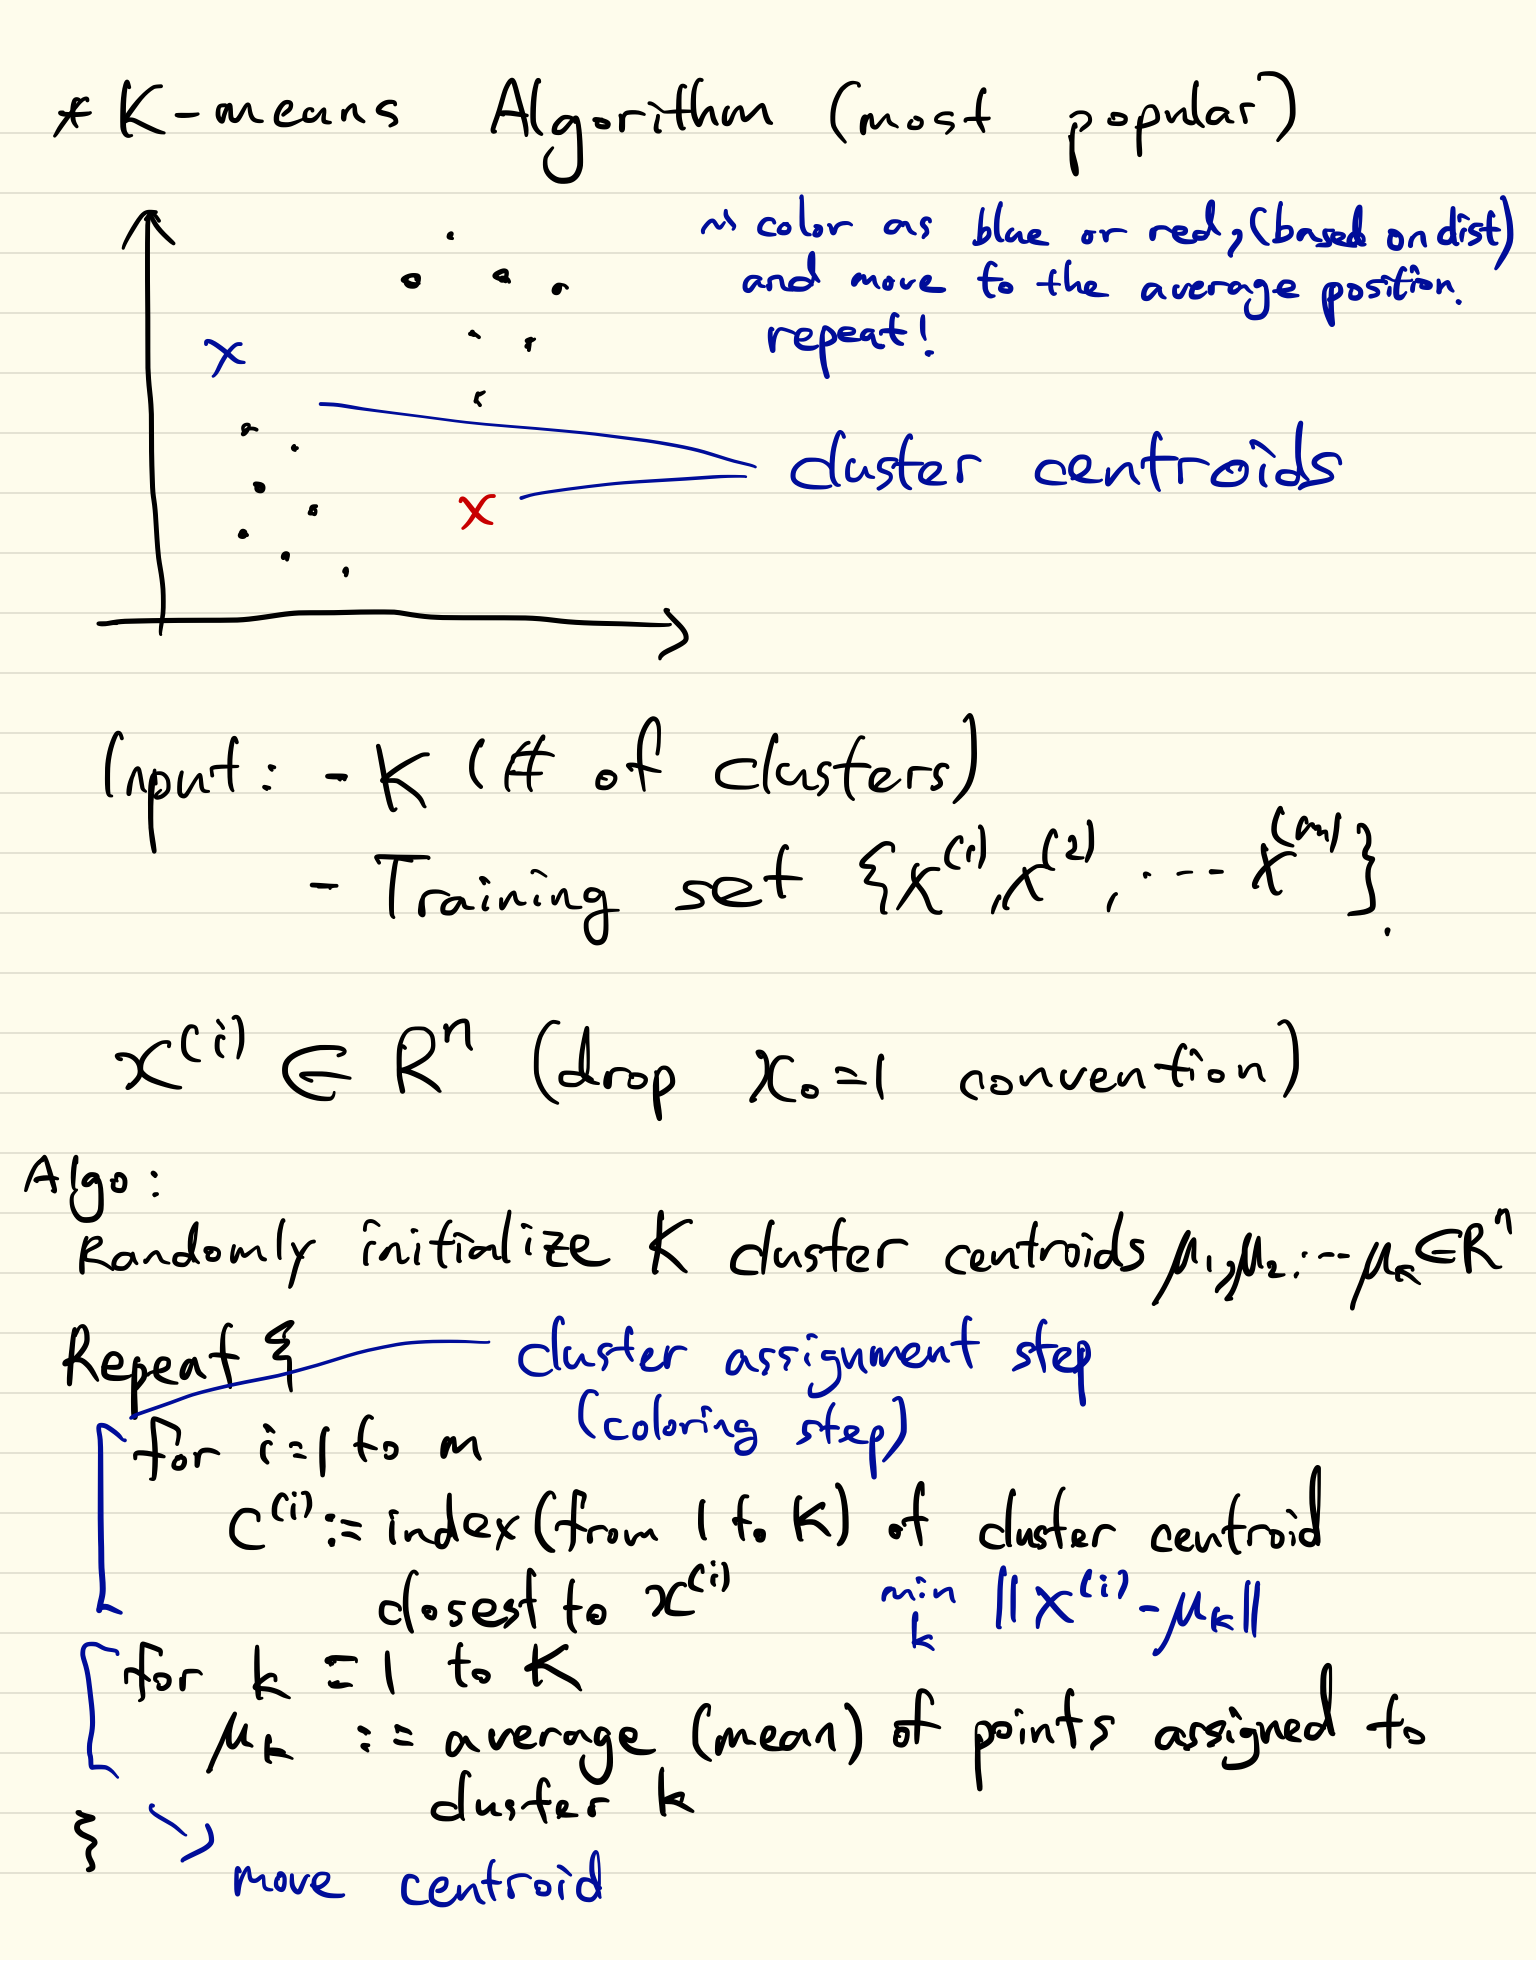 * K-means Algorithm (most popular)
~> color as blue or red, (based on dist)
and move to the average position.
repeat!
x
cluster centroids
x
Input: - K (# of clusters)
- Training set {x⁽¹⁾, x⁽²⁾, ... x⁽ᵐ⁾}.
x⁽ⁱ⁾ ∈ Rⁿ (drop x₀=1 convention)
Algo:
Randomly initialize K cluster centroids μ₁, μ₂, ... μ_K ∈ Rⁿ
Repeat {
cluster assignment step
(coloring step)
for i=1 to m
c⁽ⁱ⁾ := index (from 1 to K) of cluster centroid
closest to x⁽ⁱ⁾
min ‖x⁽ⁱ⁾ - μ_k‖
k
for k = 1 to K
μ_k := average (mean) of points assigned to
cluster k
}
move centroid